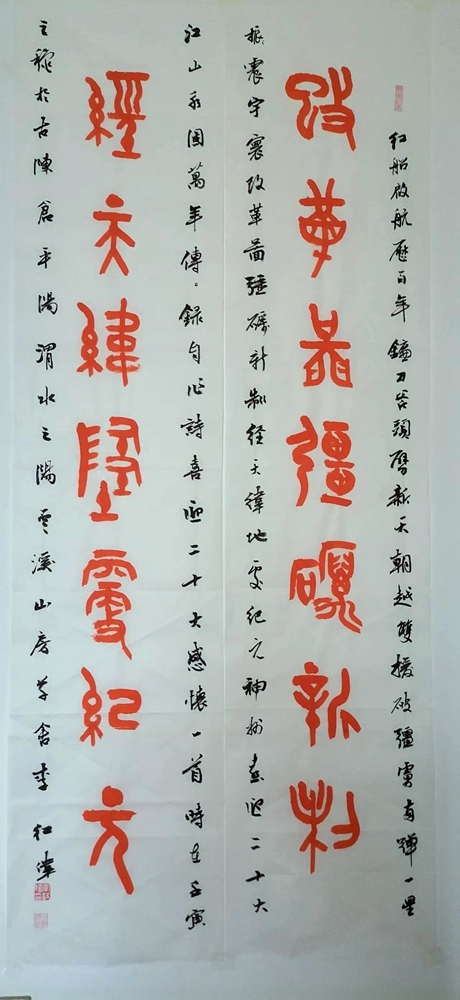 红船啟航歷百年鐮刀斧頭劈新天朝越雙援破疆虜両彈一星
改革啚疆礪新制
振震宇寰改革啚疆礪新制经天緯地雯紀元神州喜迎二十大
江山永固萬年傳。錄自作詩喜迎二十大感懷一首時在壬寅
經天緯墬雯紀元
之穐於古陳倉平陽渭水之陽雲溪山房草舍李红偉